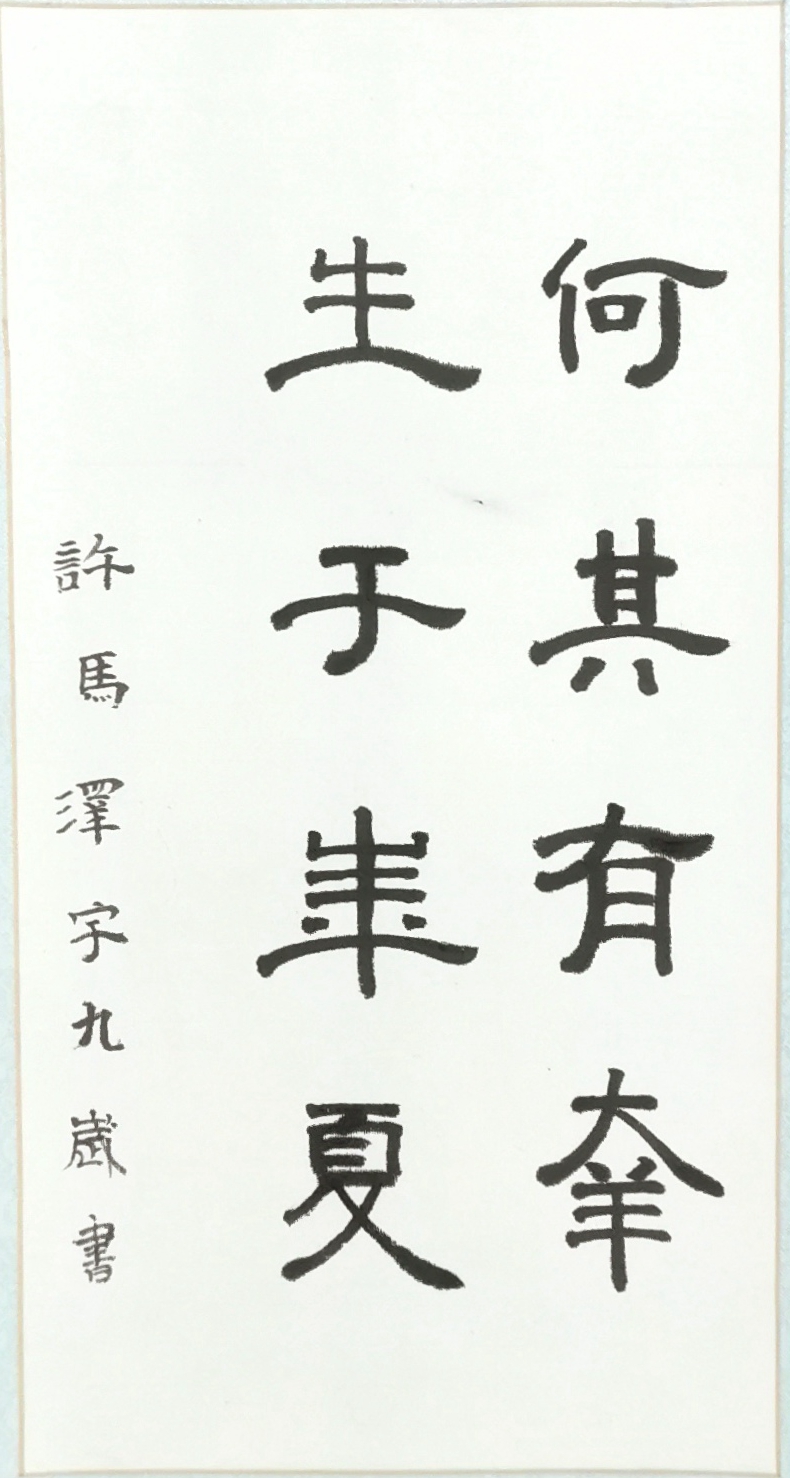 何其有幸
生于華夏
許馬澤宇九歲書